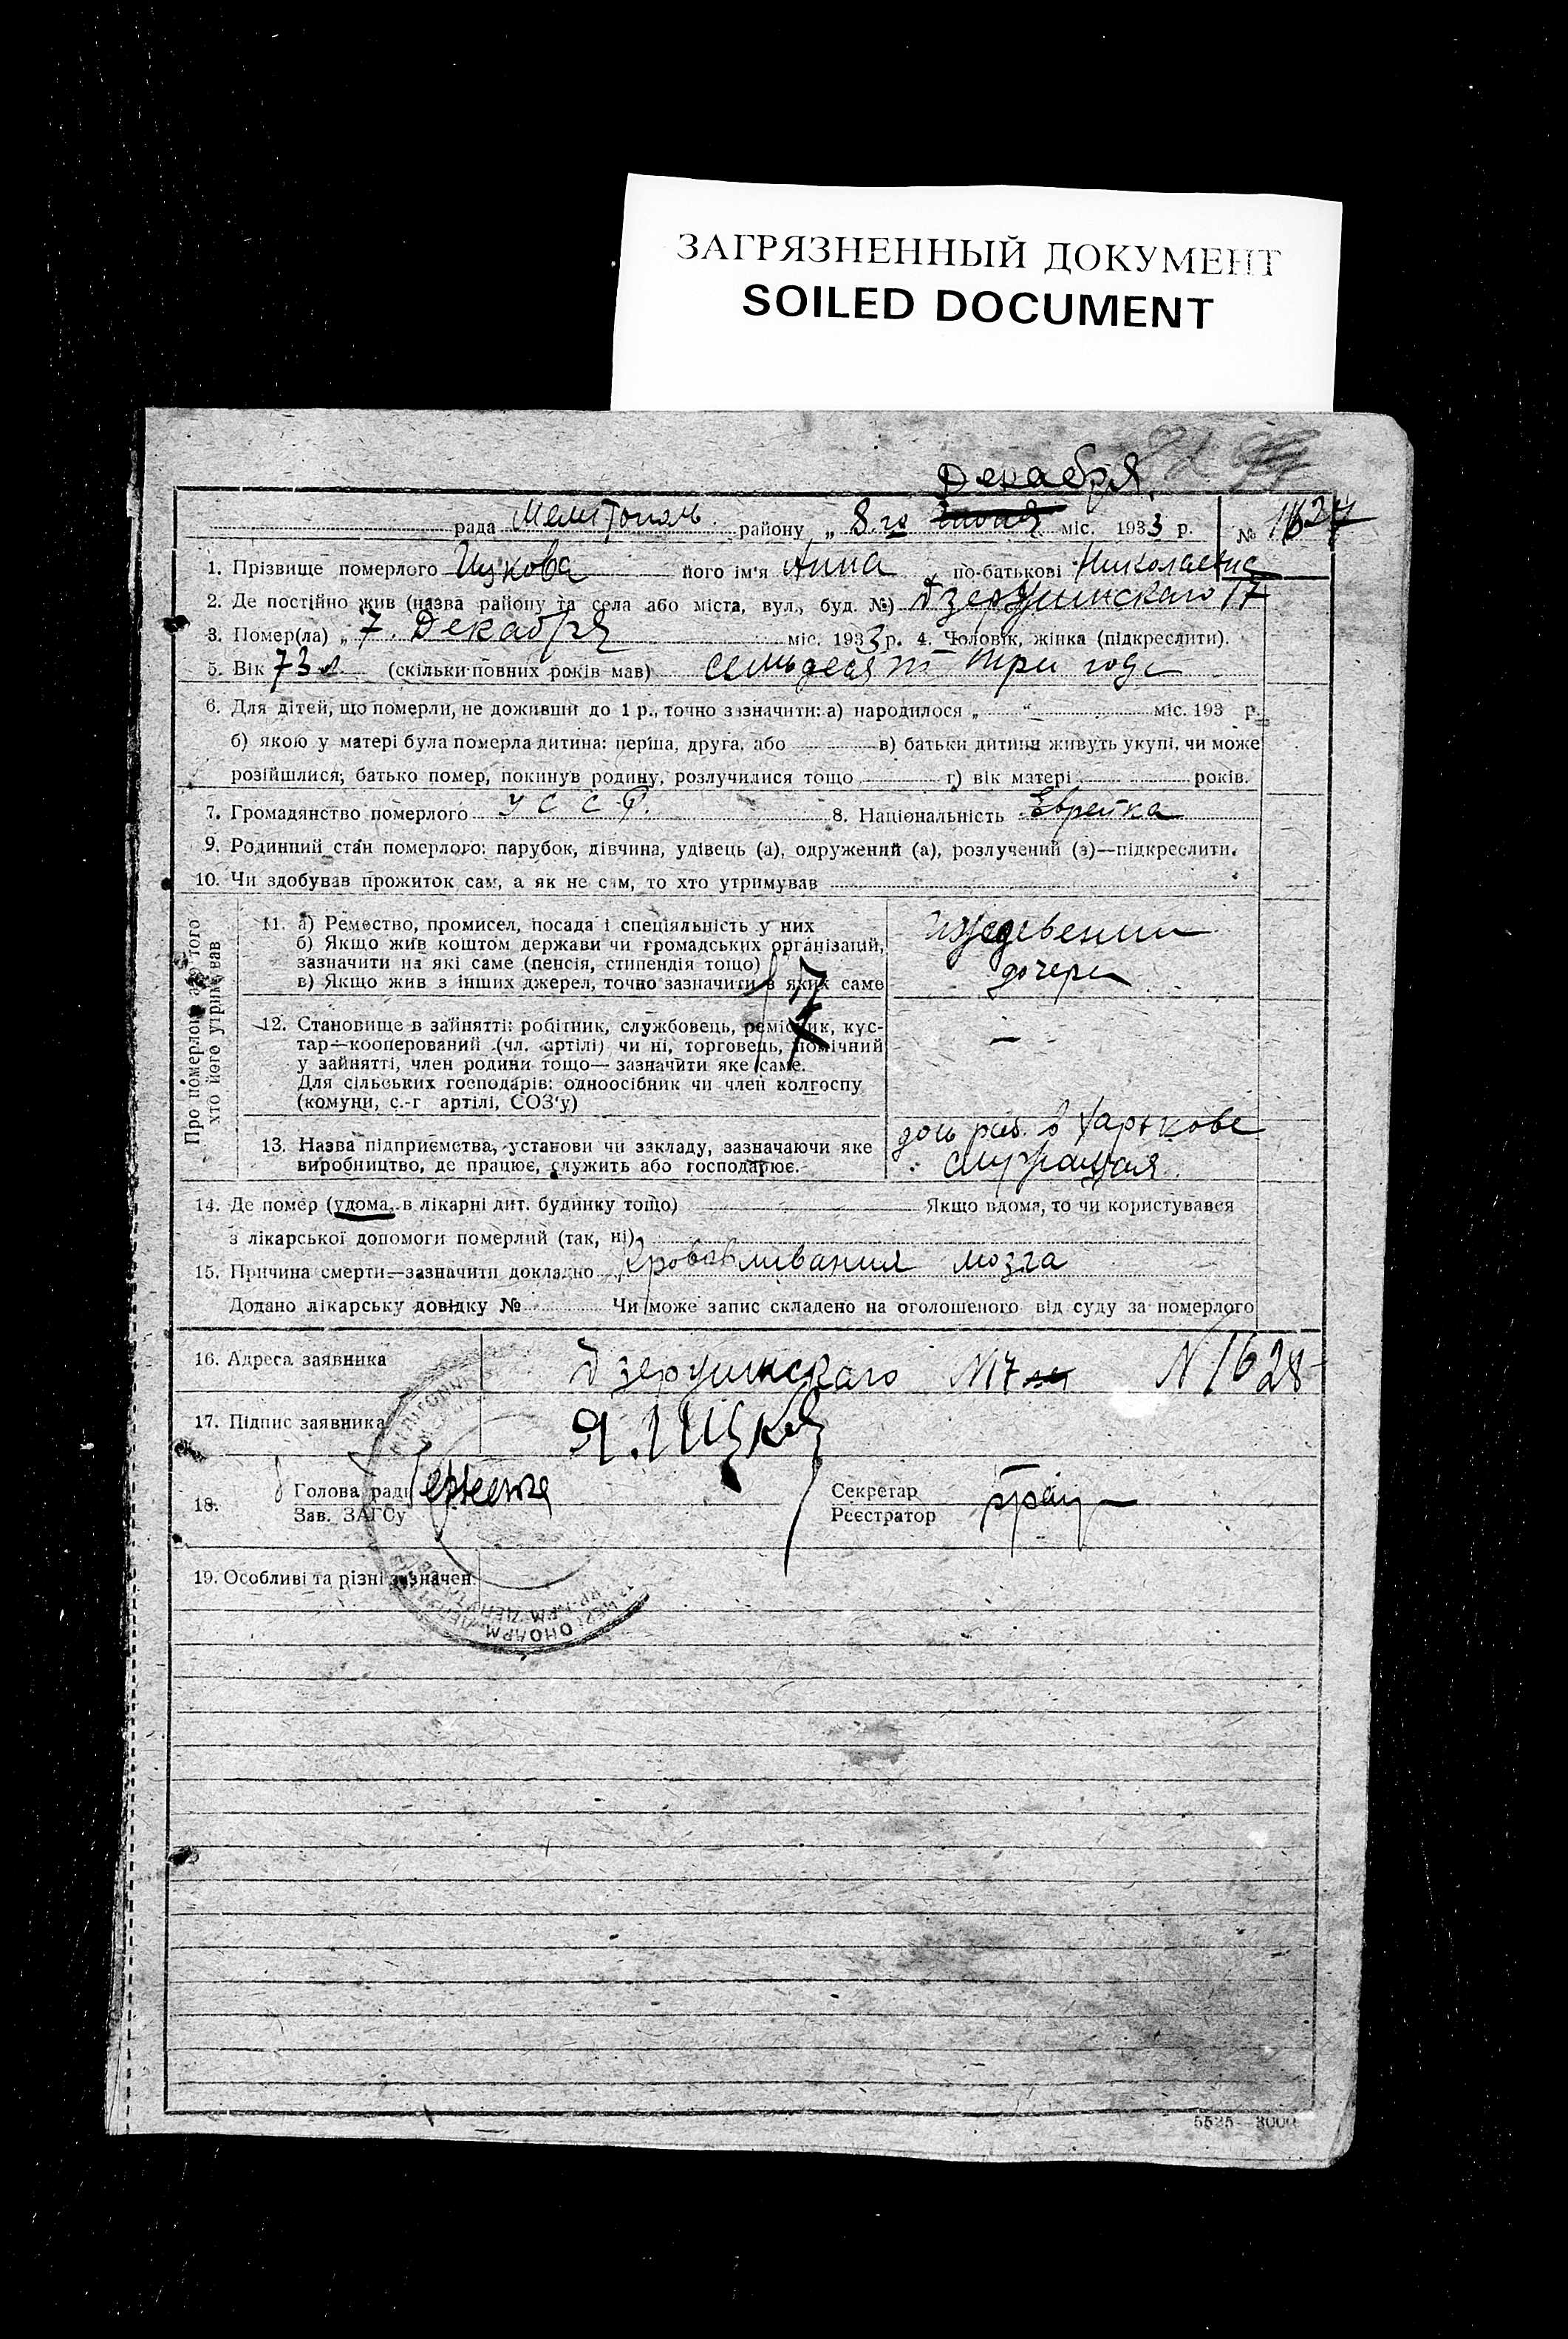 ЗАГРЯЗНЕННЫЙ ДОКУМЕНТ
SOILED DOCUMENT
Декабря
рада Мелитополь району „ 8 го міс. 1933 р. № 1627
1. Прізвище померлого Ицкова його ім'я Анна по-батькові Николаевна
2. Де постійно жив (назва району та села або міста, вул., буд. №) Дзержинскаго 17
3. Помер(ла) „ 7 Декабря міс. 1933 р. 4. Чоловік, жінка (підкреслити).
5. Вік 73 л. (скільки повних років мав) семьдесят три года
6. Для дітей, що померли, не доживши до 1 р., точно зазначити: а) народилося „ “ міс. 193 р.
б) якою у матері була померла дитина: перша, друга, або в) батьки дитини живуть укупі, чи може
розійшлися; батько помер, покинув родину, розлучилися тощо г) вік матері років.
7. Громадянство померлого У С С Р. 8. Національність Еврейка
9. Родинний стан померлого: парубок, дівчина, удівець (а), одружений (а), розлучений (а)—підкреслити.
10. Чи здобував прожиток сам, а як не сам, то хто утримував
Про померлого або того
хто його утримував
11. а) Ремество, промисел, посада і спеціяльність у них
б) Якщо жив коштом держави чи громадських організацій,
зазначити на які саме (пенсія, стипендія тощо)
в) Якщо жив з інших джерел, точно зазначити з яких саме
иждевении
дочери
12. Становище в зайнятті: робітник, службовець, ремісник, кус-
тар—кооперований (чл. артілі) чи ні, торговець, помічний
у зайнятті, член родини тощо— зазначити яке саме.
Для сільських господарів: одноосібник чи член колгоспу
(комуни, с.-г артілі, СОЗ'у)
—
13. Назва підприємства, установи чи закладу, зазначаючи яке
виробництво, де працює, служить або господарює.
дочь раб. в Харькове
служащая
14. Де помер (удома, в лікарні дит. будинку тощо) Якщо вдома, то чи користувався
з лікарської допомоги померлий (так, ні)
15. Причина смерти—зазначити докладно Кровавливания мозга
Додано лікарську довідку № Чи може запис складено на оголошеного від суду за померлого
16. Адреса заявника Дзержинскаго N 17 N 1628
17. Підпис заявника Я. Ицков
18. Голова ради
Зав. ЗАГСу
Секретар
Реєстратор
19. Особливі та різні зазначен.
5525—3000